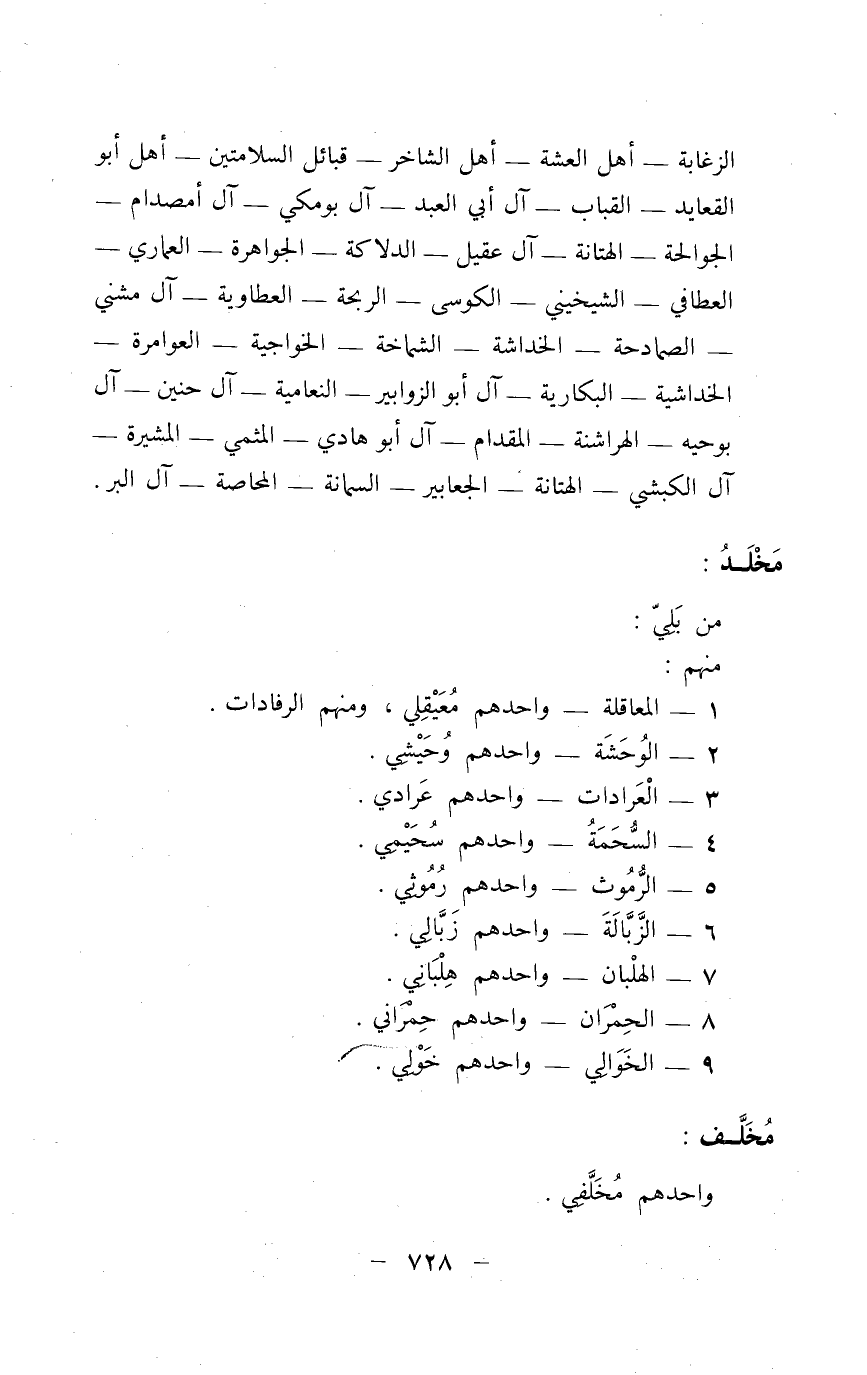 الزغابة — أهل العشة — أهل الشاخر — قبائل السلامتين — أهل أبو
القعايد — القباب — آل أبي العبد — آل بومكي — آل أمصدام —
الجوالحة — الهتانة — آل عقيل — الدلاكة — الجواهرة — العماري —
العطافي — الشيخيني — الكوسى — الربحة — العطاوية — آل مشني
— الصمادحة — الخداشة — الشماخة — الخواجية — العوامرة —
الخداشية — البكارية — آل أبو الزوابير — النعامية — آل حنين — آل
بوحيه — الهراشنة — المقدام — آل أبو هادي — المثمي — المشيرة —
آل الكبشي — الهتانة — الجعابير — السمانة — المحاصة — آل البر .
مَخْلَـدُ :
من بَلِيّ :
منهم :
١ — المعاقلة — واحدهم مُعَيْقِلي ، ومنهم الرفادات .
٢ — الوُحَشَة — واحدهم وُحَيْشِي .
٣ — الْعَرادات — واحدهم عَرادي .
٤ — السُّحَمَةُ — واحدهم سُحَيْمِي .
٥ — الرُّمُوث — واحدهم رُمُوثِي .
٦ — الزَّبَّالَةَ — واحدهم زَبَّالِي .
٧ — الهلْبان — واحدهم هِلْبَانِي .
٨ — الحِمْرَان — واحدهم حِمْرَاني .
٩ — الخَوَالِي — واحدهم خَوْلِي .
مُخَلَّـف :
واحدهم مُخَلَّفِي .
— ٧٢٨ —